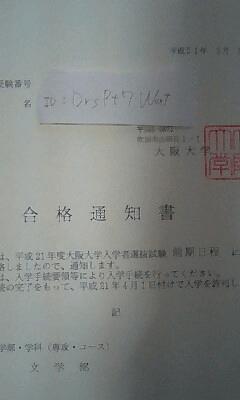 平成21年 3月
受験番号
名
ID:DrsPt7Wat
大阪大学
合格通知書
は、平成21年度大阪大学入学者選抜試験 前期日程 に
格しましたので、通知します。
は、入学手続要領等により入学手続を行ってください。
続の完了をもって、平成21年4月1日付けで入学を許可し
記
学部・学科(専攻・コース)
文学部